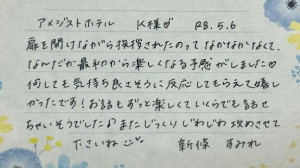 アメジストホテル K様♡ R8.5.6
扉を開けながら挨拶されたのってなかなかなくて、
なんだか最初から楽しくなる予感がしました♡
何しても気持ち良さそうに反応してもらえて嬉し
かったです！お話もずっと楽しくていくらでも話せ
ちゃいそうでした♪またじっくりじわじわ攻めさせて
下さいね
新條 すみれ